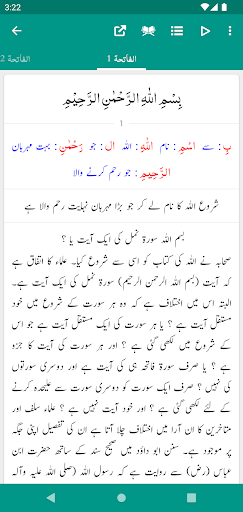 3:22
الفاتحة 1
الفاتحة 2
بِسْمِ اللهِ الرَّحْمٰنِ الرَّحِيْمِ
1
بِ : سے اسْمِ : نام اللّٰهِ : اللہ ال : جو رَحْمٰنِ : بہت مہربان
الرَّحِيمِ : جو رحم کرنے والا
شروع اللہ کا نام لے کر جو بڑا مہربان نہایت رحم والا ہے
بسم اللہ سورۃ نمل کی ایک آیت یا ؟
صحابہ نے اللہ کی کتاب کو اسی سے شروع کیا۔ علماء کا اتفاق ہے
کہ آیت (بسم اللہ الرحمن الرحیم) سورۃ نمل کی ایک آیت ہے۔
البتہ اس میں اختلاف ہے کہ وہ ہر سورت کے شروع میں خود
مستقل آیت ہے ؟ یا ہر سورت کی ایک مستقل آیت ہے جو اس
کے شروع میں لکھی گئی ہے ؟ اور ہر سورت کی آیت کا جزو
ہے ؟ یا صرف سورۃ فاتحہ ہی کی آیت ہے اور دوسری سورتوں
کی نہیں ؟ صرف ایک سورت کو دوسری سورت سے علیحدہ کرنے
کے لئے لکھی گئی ہے ؟ اور خود آیت نہیں ہے ؟ علماء سلف اور
متاخرین کا ان آرا میں اختلاف چلا آتا ہے ان کی تفصیل اپنی جگہ
پر موجود ہے۔ سنن ابو داؤد میں صحیح سند کے ساتھ حضرت ابن
عباس (رض) سے روایت ہے کہ رسول اللہ (صلی اللہ علیہ وآلہ